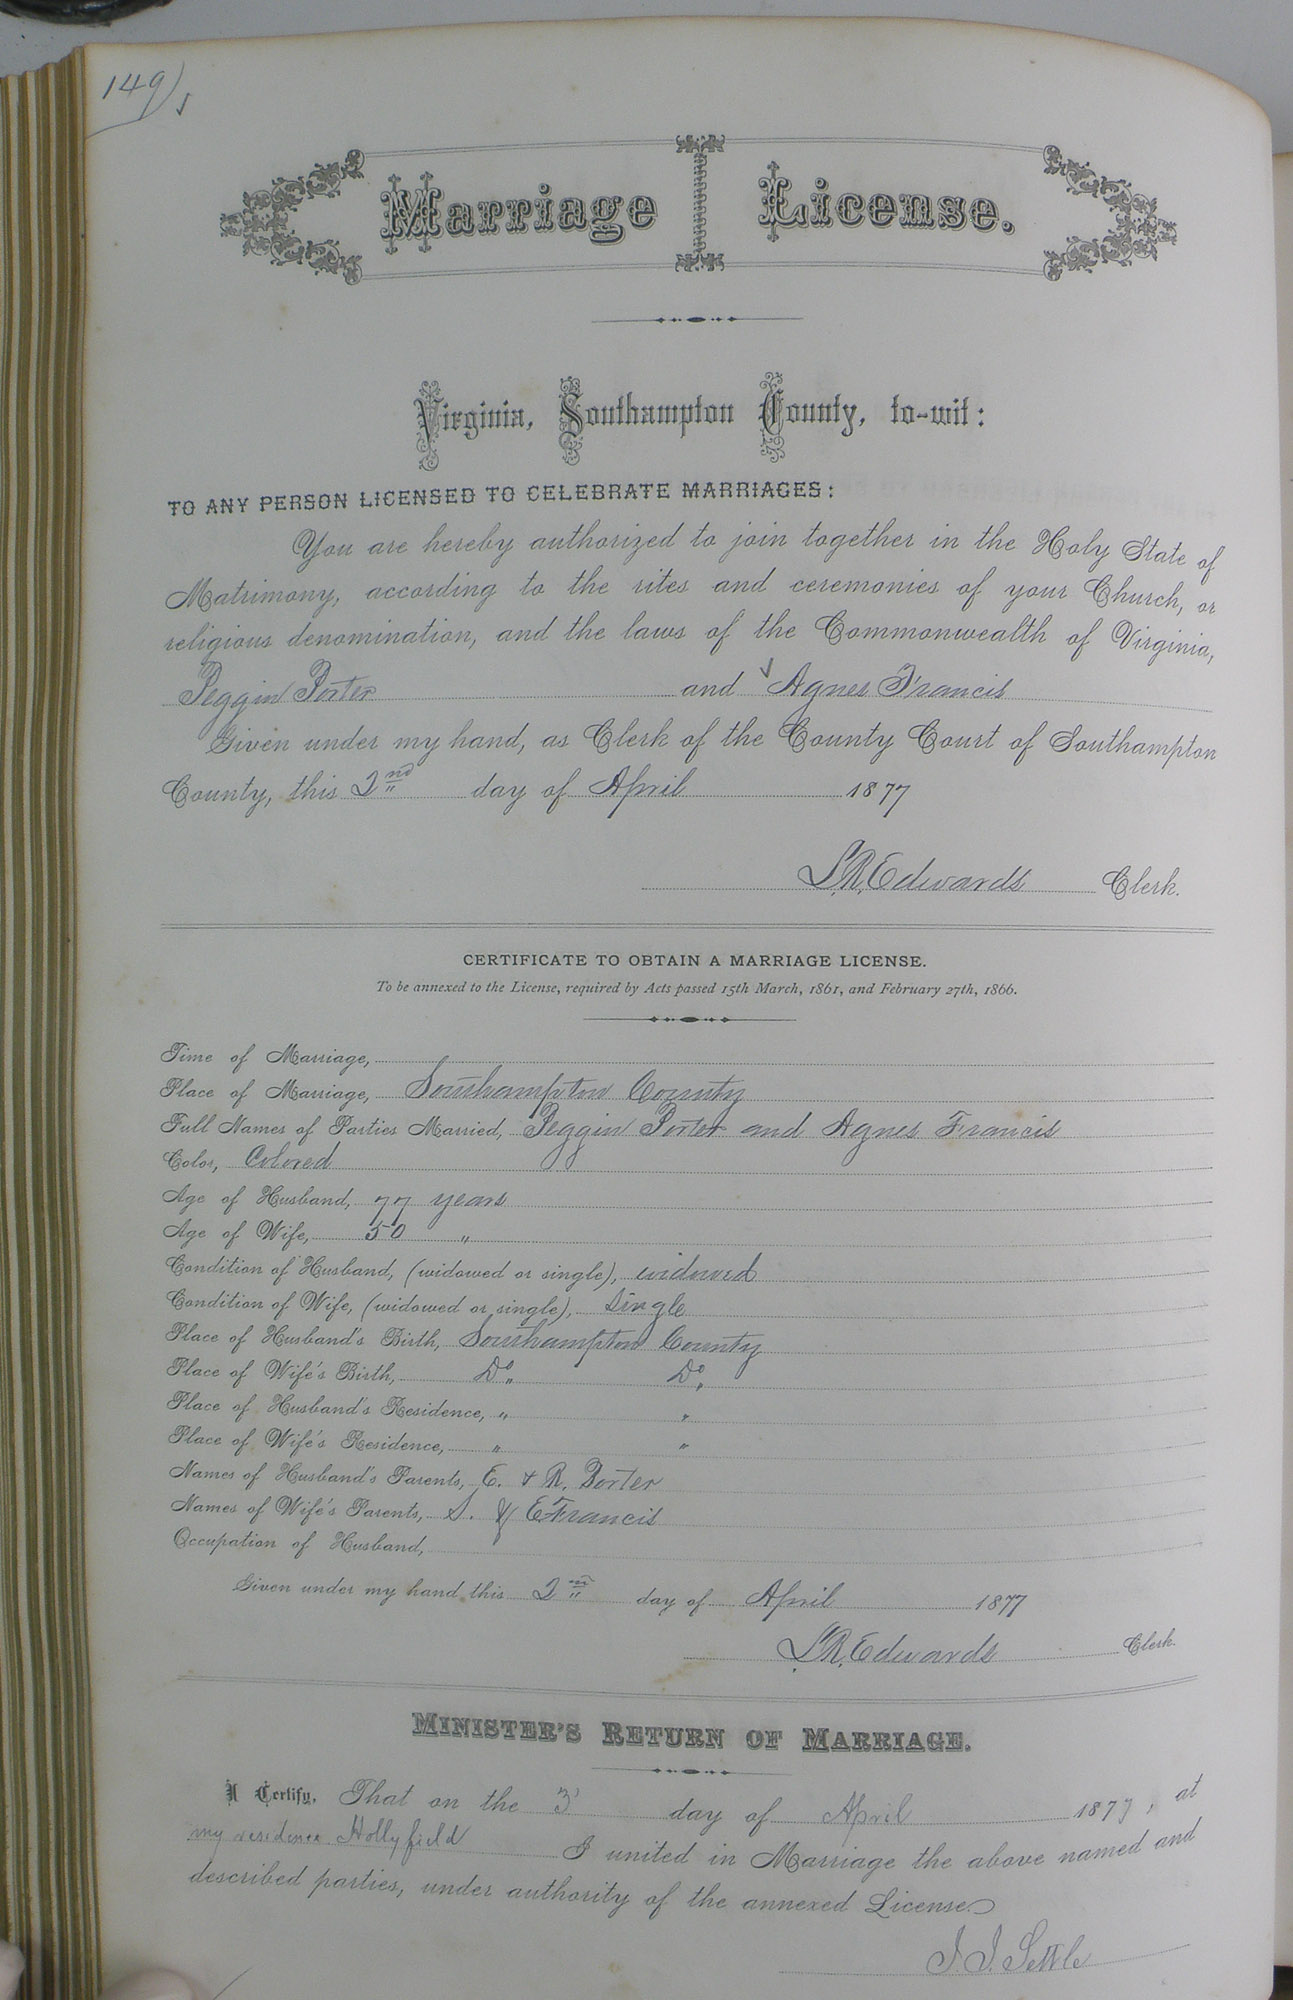 149)
Marriage License.
Virginia, Southampton County, to-wit:
TO ANY PERSON LICENSED TO CELEBRATE MARRIAGES:
You are hereby authorized to join together in the Holy State of
Matrimony, according to the rites and ceremonies of your Church, or
religious denomination, and the laws of the Commonwealth of Virginia,
Peggin Porter and Agnes Francis
Given under my hand, as Clerk of the County Court of Southampton
County, this 2nd day of April 1877
L.R. Edwards Clerk.
CERTIFICATE TO OBTAIN A MARRIAGE LICENSE.
To be annexed to the License, required by Acts passed 15th March, 1861, and February 27th, 1866.
Time of Marriage,
Place of Marriage, Southampton County
Full Names of Parties Married, Peggin Porter and Agnes Francis
Color, Colored
Age of Husband, 77 years
Age of Wife, 50 "
Condition of Husband, (widowed or single), widowed
Condition of Wife, (widowed or single), Single
Place of Husband's Birth, Southampton County
Place of Wife's Birth, Do. Do.
Place of Husband's Residence, " "
Place of Wife's Residence, " "
Names of Husband's Parents, E. & R. Porter
Names of Wife's Parents, S. & E Francis
Occupation of Husband,
Given under my hand this 2nd day of April 1877
L.R. Edwards Clerk.
MINISTER'S RETURN OF MARRIAGE.
I Certify, That on the 3' day of April 1877, at
my residence Hollyfield I united in Marriage the above named and
described parties, under authority of the annexed License.
J. J. Settle